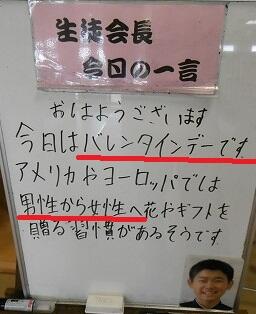 生徒会長
今日の一言
おはようございます
今日はバレンタインデーです
アメリカやヨーロッパでは
男性から女性へ花やギフトを
贈る習慣があるそうです